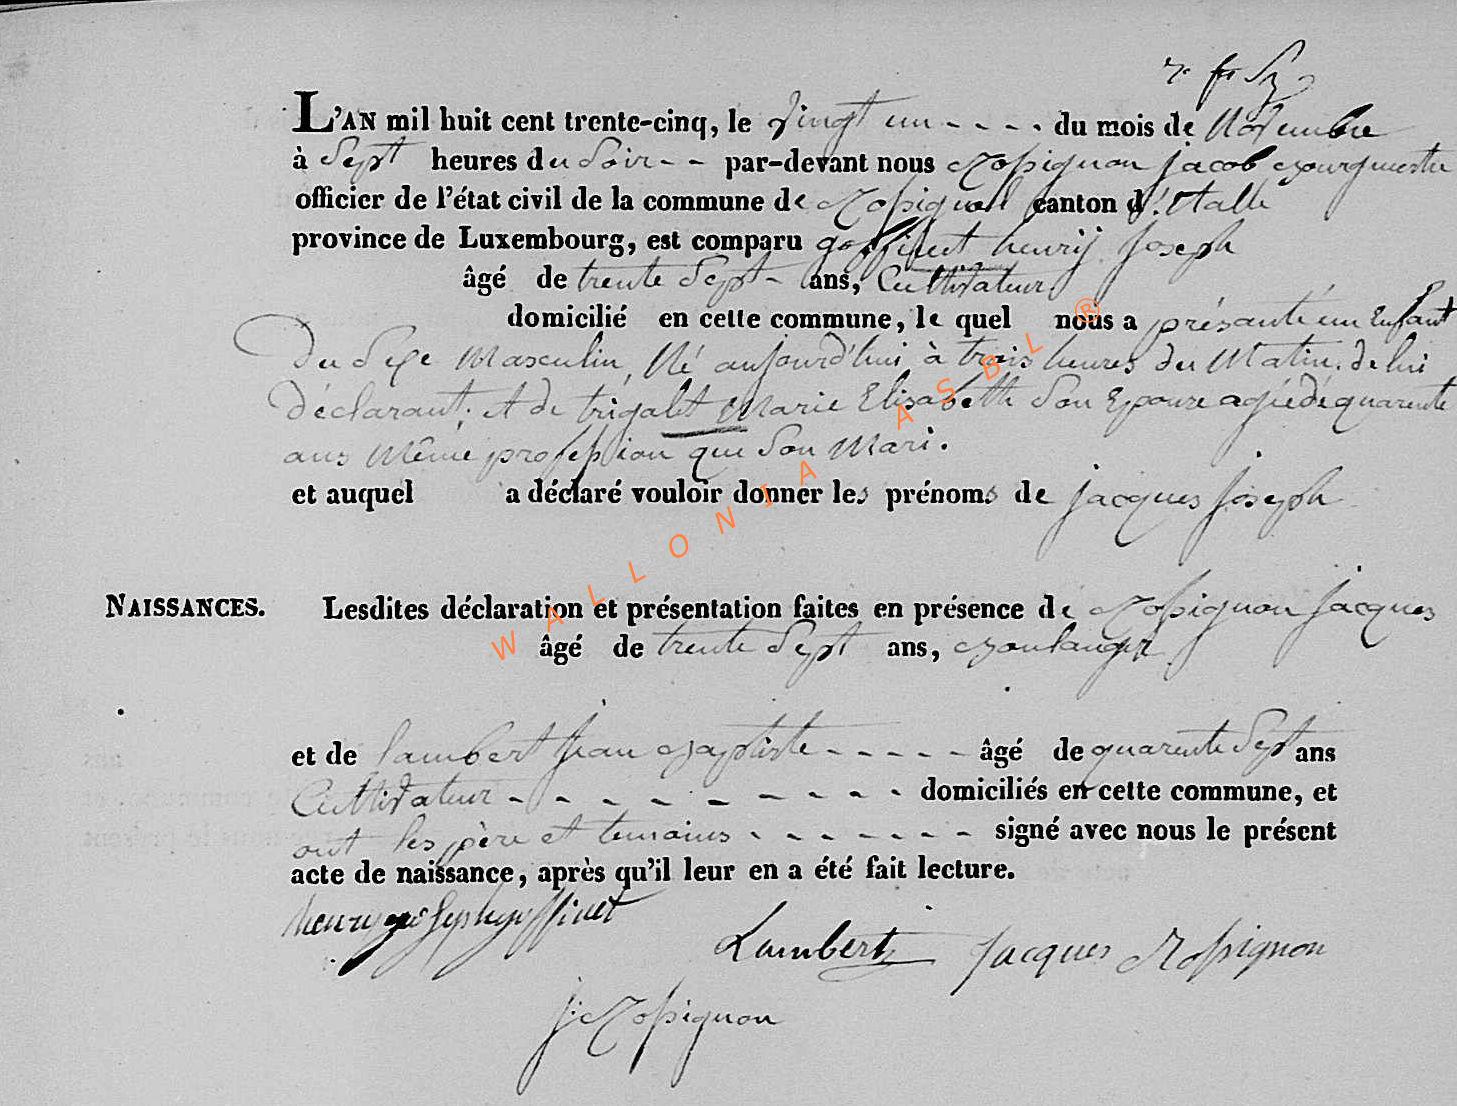 L'AN mil huit cent trente-cinq, le vingt un - - - - du mois de Novembre
à Sept heures du Soir - - par-devant nous Rossignon jacob Bourgmestre
officier de l'état civil de la commune de Rossignol canton d'Etalle
province de Luxembourg, est comparu goffinet henrij Joseph
âgé de trente Sept - ans, Cultivateur
domicilié en cette commune, le quel nous a présanté un Enfant
Du Sexe Masculin, Né aujourd'hui à trois heures du Matin. de lui
déclarant, et de trigalet Marie Elisabeth Son Epouze agée de quarente
ans Même profession que Son Mari.
et auquel a déclaré vouloir donner les prénoms de jacques Joseph
NAISSANCES. Lesdites déclaration et présentation faites en présence de Rossignon Jacques
âgé de trente Sept ans, Boulanger
et de lambert Jean Baptiste - - - - - âgé de quarente Sept ans
Cultivateur - - - - - - - - - domiciliés en cette commune, et
ont les père et temoins - - - - - - - signé avec nous le présent
acte de naissance, après qu'il leur en a été fait lecture.
henry joseph goffinet
Lambert Jacques Rossignon
j: Rossignon
WALLONIA ASBL ®